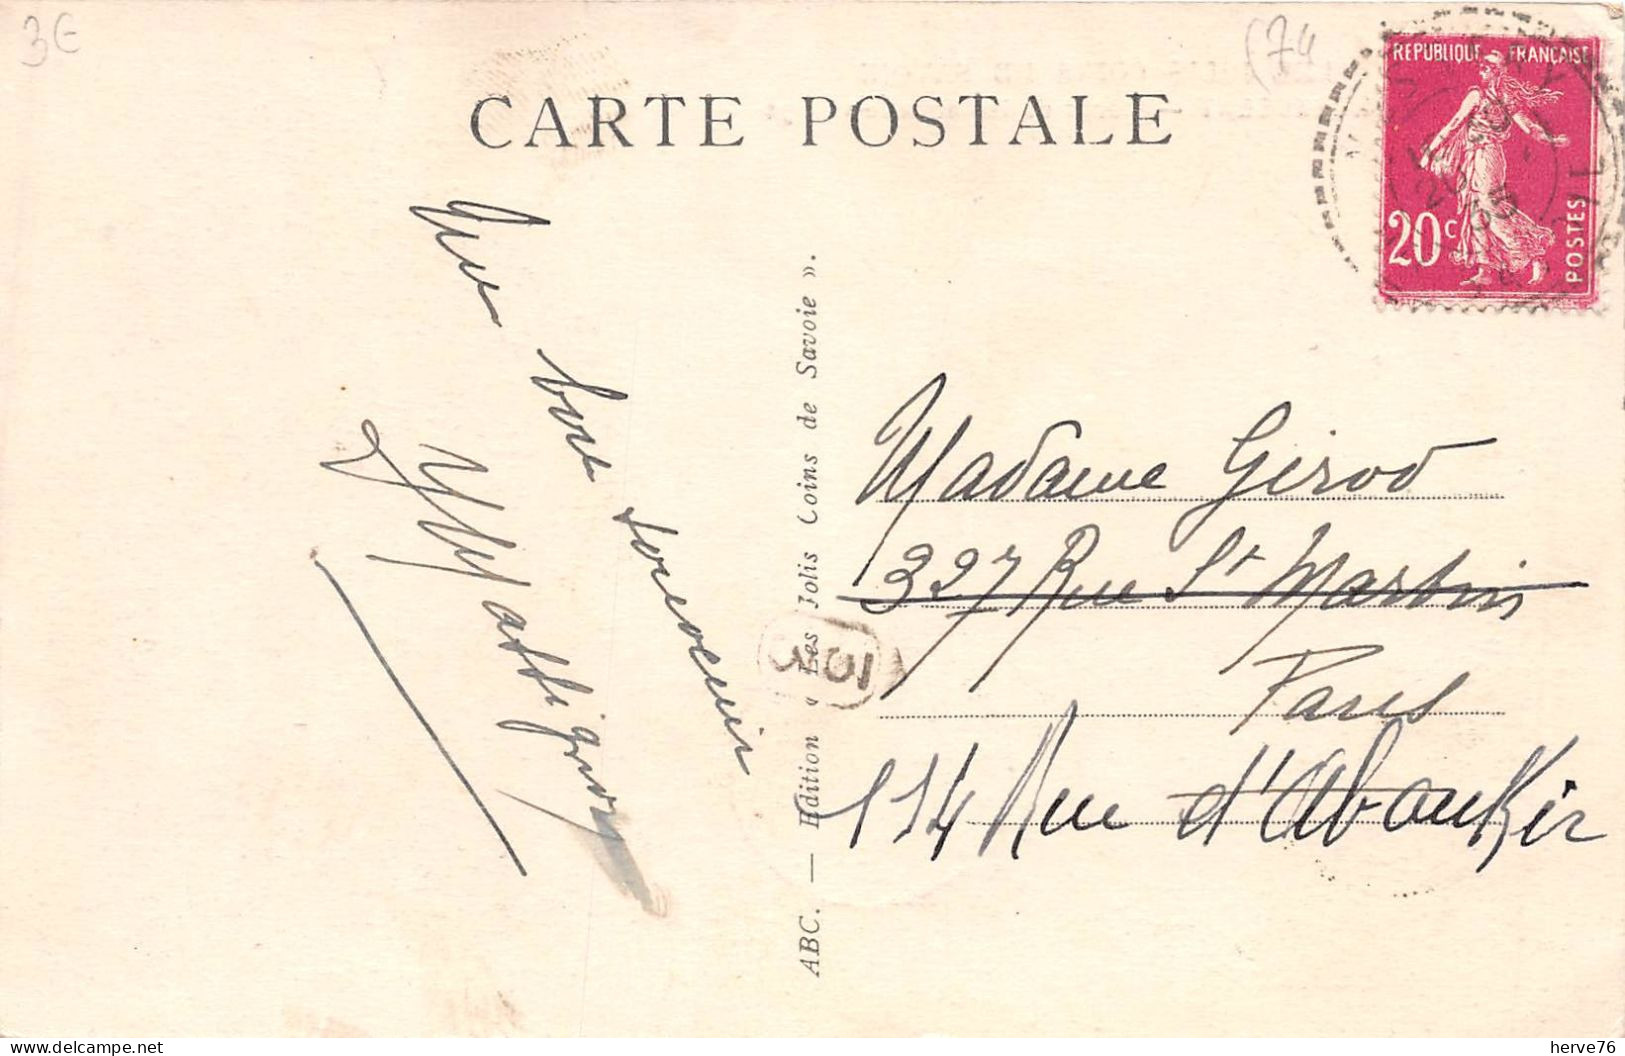 3€
(74
CARTE POSTALE
REPUBLIQUE FRANÇAISE
20c
POSTES
bon souvenir
ABC. — Edition « Les Jolis Coins de Savoie ».
Madame Girod
327 Rue St Martin
Paris
114 Rue d'Aboukir
delcampe.net
herve76